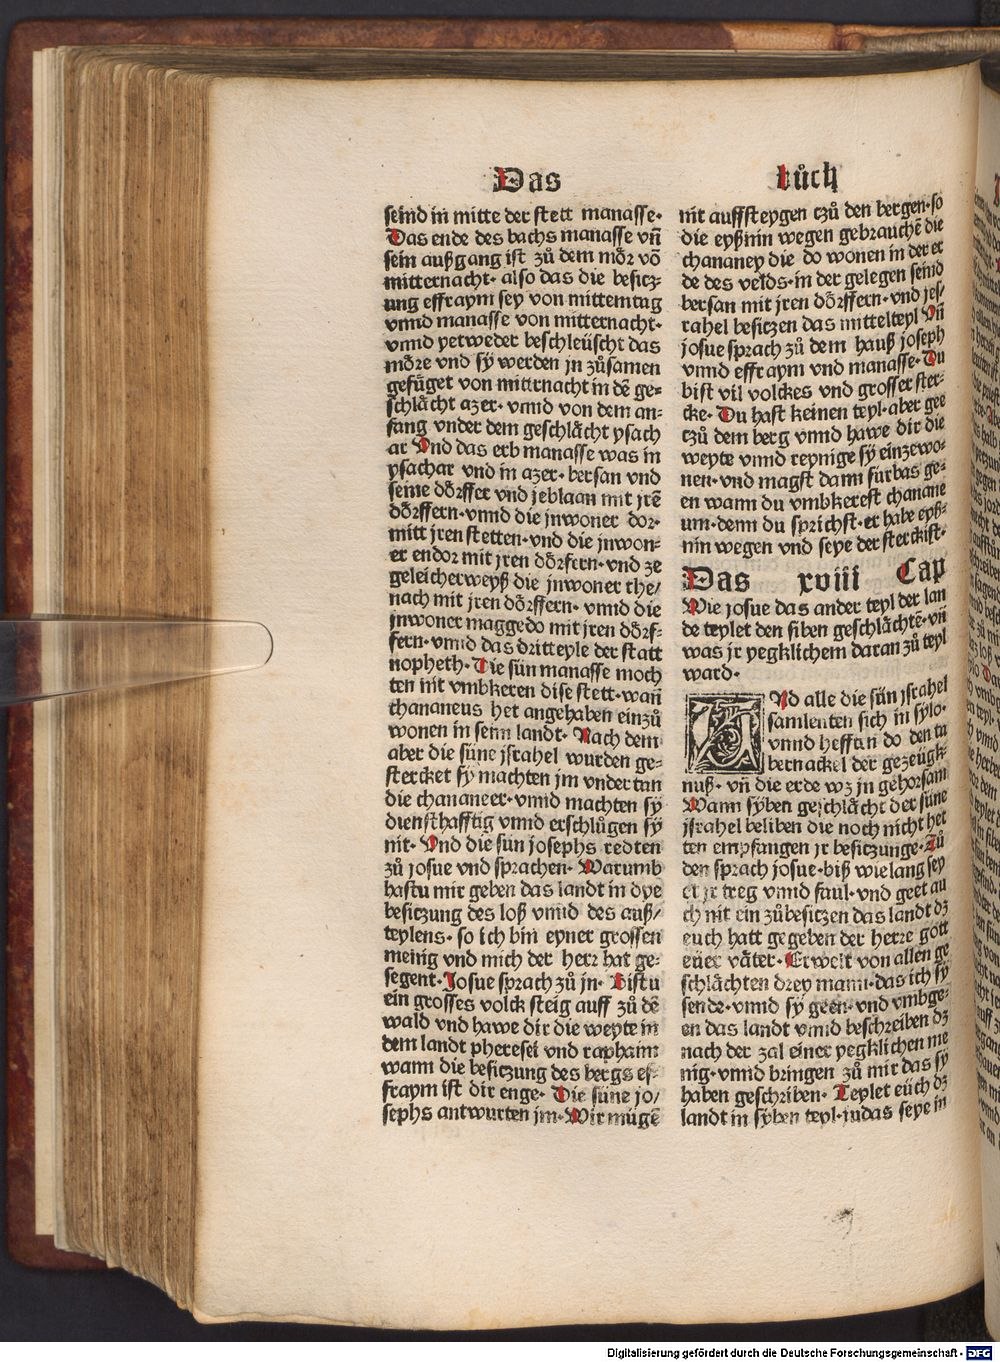 Das bůch
seind in mitte der stett manasse·
Das ende des bachs manasse vn̄
sein außgang ist zů dem mȫr võ
mitternacht· also das die besitz⸗
ung effraym sey von mittemtag
vnnd manasse von mitternacht·
vnnd yetweder beschleüscht das
mȫre vnd sy̋ werden jn zůsamen
gefüget von mittrnacht in dē ge⸗
schlächt azer· vnnd von dem an⸗
fang vnder dem geschlächt ysach
ar Vnd das erb manasse was in
ysachar vnd in azer· bersan vnd
seine dȫrffer vnd jeblaan mit jrē
dȫrffern· vnnd die jnwoner dor⸗
mitt jren stetten· vnd die jnwon⸗
er endor mit jren dȫrfern· vnd ze
geleicherweyß die jnwoner the/
nach mit jren dȫrffern· vnnd die
jnwoner maggedo mit jren dȫrf⸗
fern· vnnd das dritteyle der statt
nopheth· Die sün manasse moch
ten nit vmbkeren dise stett· wan̄
chananeus het angehaben einzů
wonen in seim landt· Nach dem
aber die süne jsrahel wurden ge⸗
stercket sy̋ machten jm vndertan
die chananeer· vnnd machten sy̋
diensthafftig vnnd erschlůgen sy̋
nit· Vnd die sün josephs redten
zů josue vnd sprachen· Warumb
hastu mir geben das landt in dye
besitzung des loß vnnd des auß/
teylens· so ich bin eyner grossen
menig vnd mich der herr hat ge⸗
segent· Josue sprach zů jn· Bistu
ein grosses volck steig auff zů dē
wald vnd hawe dir die weyte in
dem landt pheresei vnd raphaim
wann die besitzung des bergs ef⸗
fraym ist dir enge· Die süne jo/
sephs antwurten jm· Wir mügē
nit auffsteygen tzů den bergen· so
die eyßnin wegen gebrauchē die
chananey die do wonen in der er
de des velds· in der gelegen seind
bersan mit jren dȫrffern· vnd jes/
rahel besitzen das mittelteyl Vn̄
josue sprach zů dem hauß joseph
vnnd effraym vnd manasse· Du
bist vil volckes vnd grosser ster⸗
cke· Du hast keinen teyl· aber gee
tzů dem berg vnnd hawe dir die
weyte vnnd reynige sy̋ einzewo⸗
nen· vnd magst dann fürbas ge⸗
en wann du vmbkerest chanane
um· denn du sprichst· er habe eyß⸗
nin wegen vnd seye der sterckist·
Das xviii Cap
Wie josue das ander teyl der lan
de teylet den siben geschlächtē· vn̄
was jr yegklichem daran zů teyl
ward·
VNd alle die sün jsrahel
samlenten sich in sylo·
vnnd hefftan do den ta
bernackel der gezeügk⸗
nuß· vn̄ die erde wz jn gehorsam
Wann syben geschlächt der süne
jsrahel beliben die noch nicht het
ten empfangen jr besitzunge· Zů
den sprach josue· biß wielang sey
et jr treg vnnd faul· vnd geet au
ch nit ein zůbesitzen das landt dz
euch hatt gegeben der herre gott
euer väter· Erwelt von allen ge
schlächten drey mann· das ich sy̋
sende· vnnd sy̋ geen· vnd vmbge⸗
en das landt vnnd beschreiben dz
nach der zal einer yegklichen me
nig· vnnd bringen zů mir das sy̋
haben geschriben· Teylet eüch dz
landt in syben teyl· judas seye in
Digitalisierung gefördert durch die Deutsche Forschungsgemeinschaft - DFG